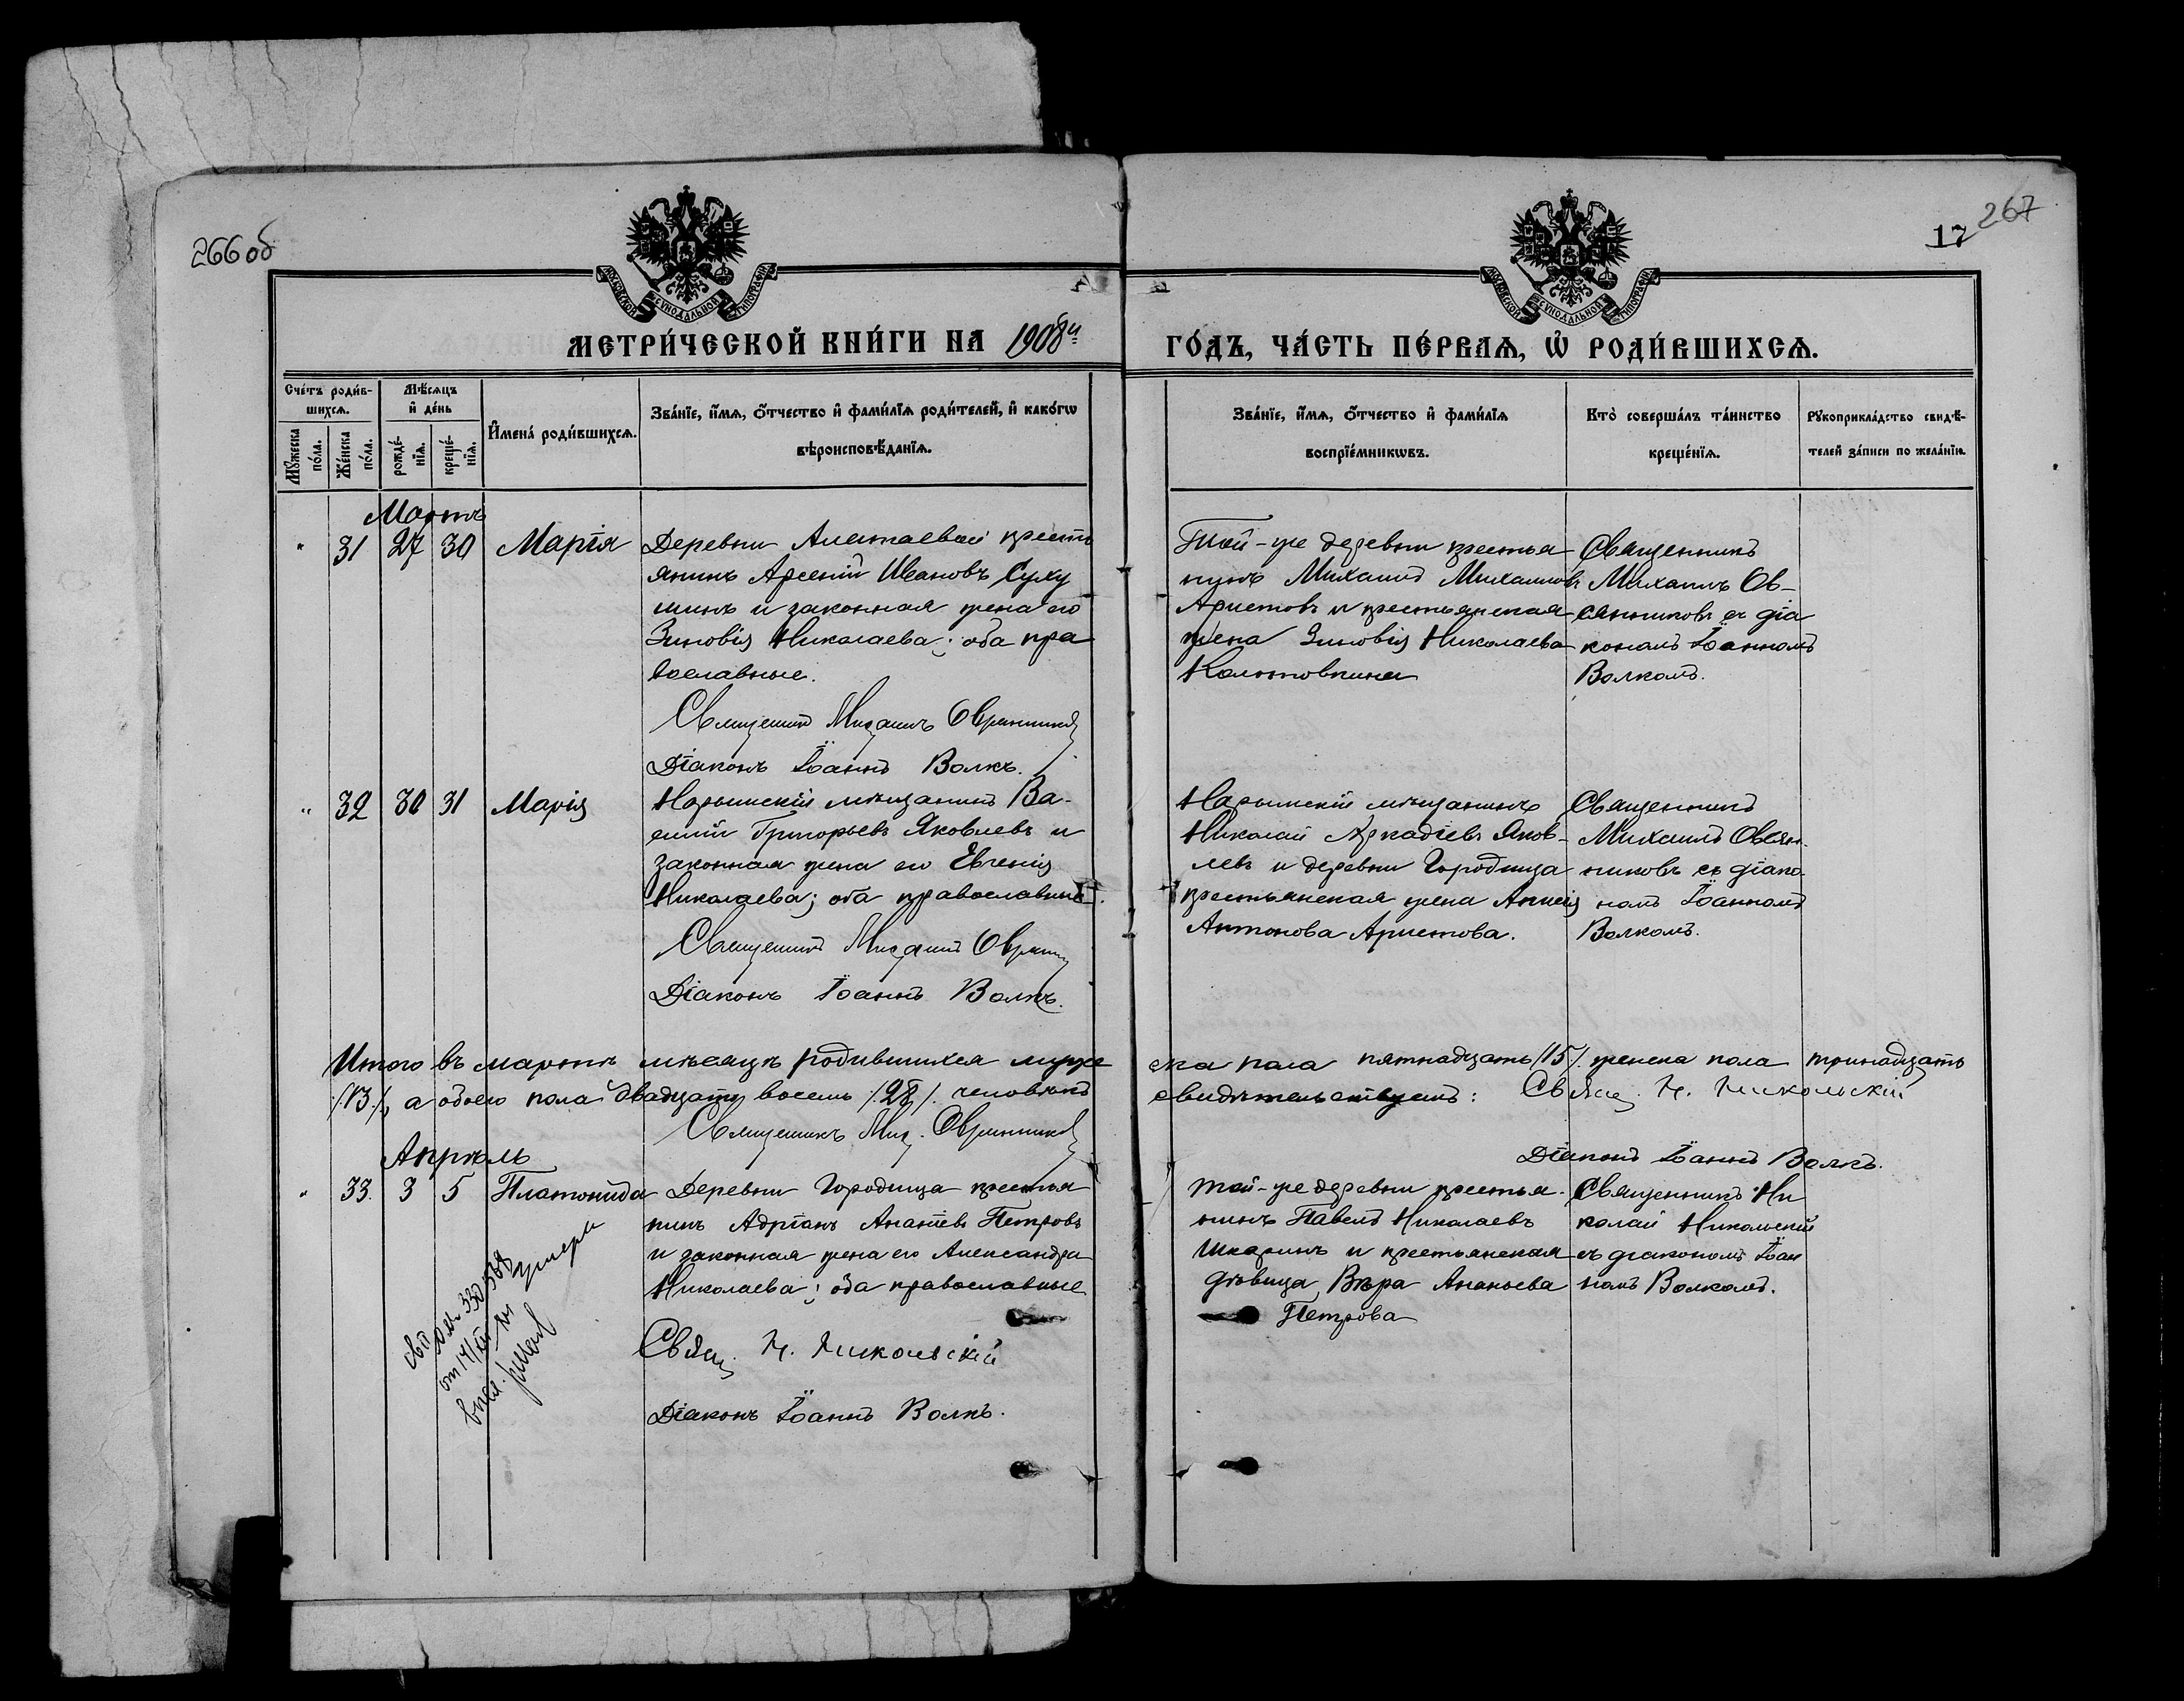 266 об
267
17
МОСКОВСКОЙ СУНОДАЛЬНОЙ ТИПОГРАФІИ
МОСКОВСКОЙ СУНОДАЛЬНОЙ ТИПОГРАФІИ
МЕТРИ́ЧЕСКОЙ КНИ́ГИ НА 1908й
ГО́ДЪ, ЧА́СТЬ ПЕ́РВАѦ, Ѡ РОДИ́ВШИХСѦ.
Сче́тъ роди́в-
шихсѧ.
Мꙋ́жеска по́ла.
Же́нска по́ла.
Мѣ́сѧцъ
и҆ де́нь
рожде́-
нїѧ.
креще́-
нїѧ.
И҆мена̀ роди́вшихсѧ.
Зва́нїе, и҆́мѧ, ѻ҆́тчество и҆ фами́лїѧ роди́телей, и҆ како́гѡ
вѣроисповѣ́данїѧ.
Зва́нїе, и҆́мѧ, ѻ҆́тчество и҆ фами́лїѧ
воспрїе́мникѡвъ.
Кто̀ соверша́лъ та́инство
креще́нїѧ.
Рꙋкоприкла́дство свидѣ́-
телей за́писи по жела́нїю.
Мартъ
" 31 27 30 Марія
Деревни Алатаевой кресть
янинъ Арсеній Ивановъ Суху
шинъ и законная жена его
Зиновія Николаева; оба пра
вославные.
Священникъ Михаилъ Овсянниковъ
Діаконъ Іоаннъ Волкъ.
Той-же деревни крестья
нинъ Михаилъ Михаиловъ
Аристовъ и крестьянская
жена Зиновія Николаева
Священникъ
Михаилъ Ов-
сянниковъ съ діа
кономъ Іоанномъ
Волкомъ.
" 32 30 31 Марія
Нарымскій мѣщанинъ Ва-
силій Григорьевъ Яковлевъ и
законная жена его Евгенія
Николаева; оба православные.
Священникъ Михаилъ Овсянник
Діаконъ Іоаннъ Волкъ.
Нарымскій мѣщанинъ
Николай Аркадіевъ Яков-
левъ и деревни Городища
крестьянская жена
Антонова Аристова.
Священникъ
Михаилъ Овсян-
никовъ съ діако-
номъ Іоанномъ
Волкомъ.
Итого въ мартѣ мѣсяцѣ родившихся муже
ска пола пятнадцать /15/. женска пола тринадцать
/13/, а обоего пола двадцать восемь /28/. человѣкъ
свидѣтельствуемъ: Свящ. Н. Никольскій
Священникъ Мих. Овсянниковъ
Діаконъ Іоаннъ Волкъ.
Апрѣль
" 33. 3 5 Платонида
умерла
Деревни Городища крестья
нинъ Адріанъ Ананіевъ Петровъ
и законная жена его Александра
Николаева; оба православные
Свящ. Н. Никольскій
Діаконъ Іоаннъ Волкъ.
той-же деревни крестья-
нинъ Павелъ Николаевъ
Шкаринъ и крестьянская
дѣвица Вѣра Ананьева
Петрова
Священникъ Ни
колай Никольскій
съ діакономъ Іоан
номъ Волкомъ.